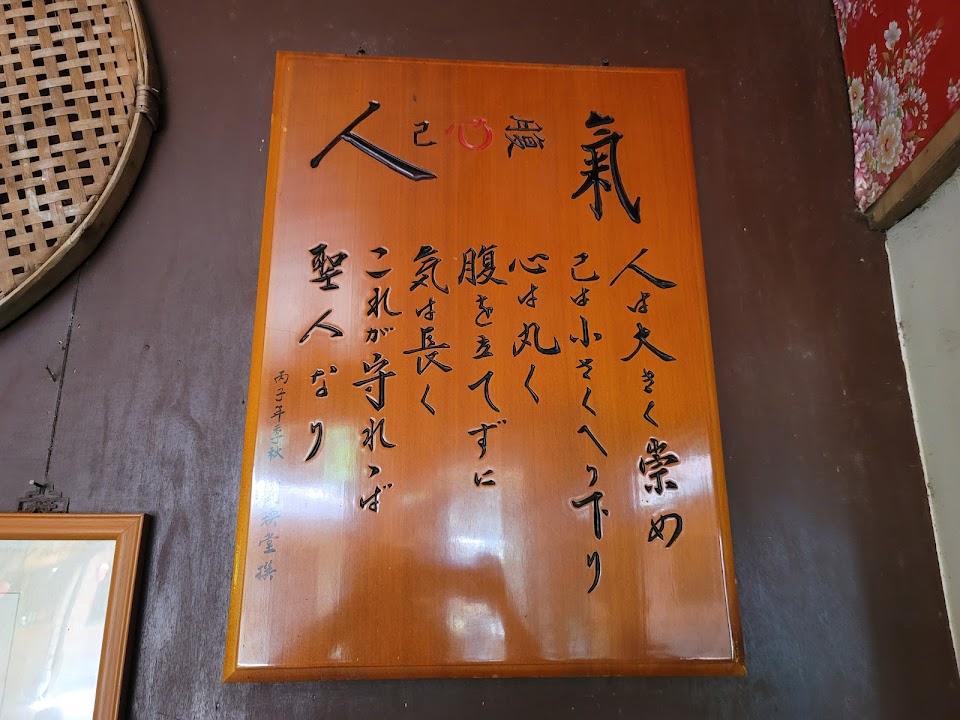 人己心腹氣
人は大きく崇め
己は小さくへり下り
心は丸く
腹を立てずに
気は長く
これが守れゝば
聖人なり
丙子年季秋
堂撰